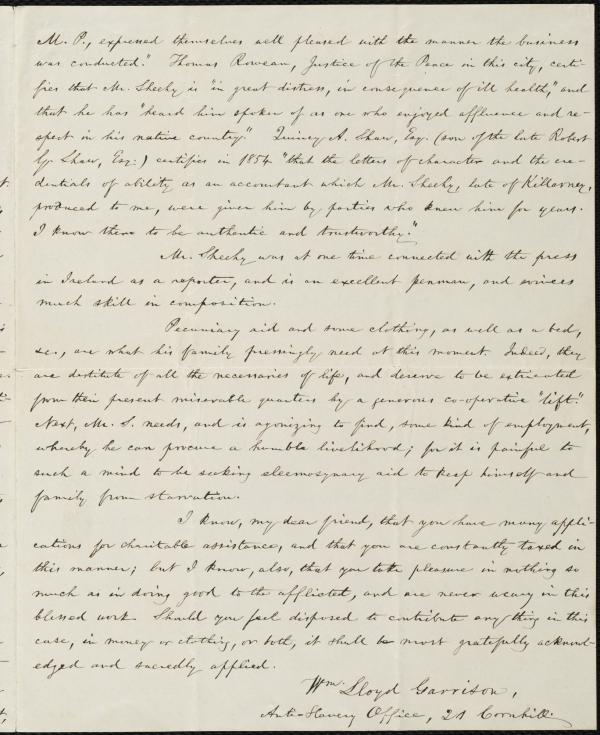 M. P., expressed themselves well pleased with the manner the business
was conducted." Thomas Rowean, Justice of the Peace in this city, certi-
fies that Mr. Sheehy is "in great distress, in consequence of ill health," and
that he has "heard him spoken of as one who enjoyed affluence and re-
spect in his native country." Quincy A. Shaw, Esq. (son of the late Robert
G. Shaw, Esq.) certifies in 1854 "that the letters of character and the cre-
dentials of ability as an accountant which Mr. Sheehy, late of Killarney,
produced to me, were given him by parties who knew him for years.
I know them to be authentic and trustworthy."
Mr. Sheehy was at one time connected with the press
in Ireland as a reporter, and is an excellent penman, and evinces
much skill in composition.
Pecuniary aid and some clothing, as well as a bed,
&c., are what his family pressingly need at this moment. Indeed, they
are destitute of all the necessaries of life, and deserve to be extricated
from their present miserable quarters by a generous co-operative "lift."
Next, Mr. S. needs, and is agonizing to find, some kind of employment,
whereby he can procure a humble livelihood; for it is painful to
such a mind to be seeking eleemosynary aid to keep himself and
family from starvation.
I know, my dear friend, that you have many appli-
cations for charitable assistance, and that you are constantly taxed in
this manner; but I know, also, that you take pleasure in nothing so
much as in doing good to the afflicted, and are never weary in this
blessed work. Should you feel disposed to contribute any thing in this
case, in money or clothing, or both, it shall be most gratefully acknowl-
edged and sacredly applied.
Wm. Lloyd Garrison,
Anti-Slavery Office, 21 Cornhill.